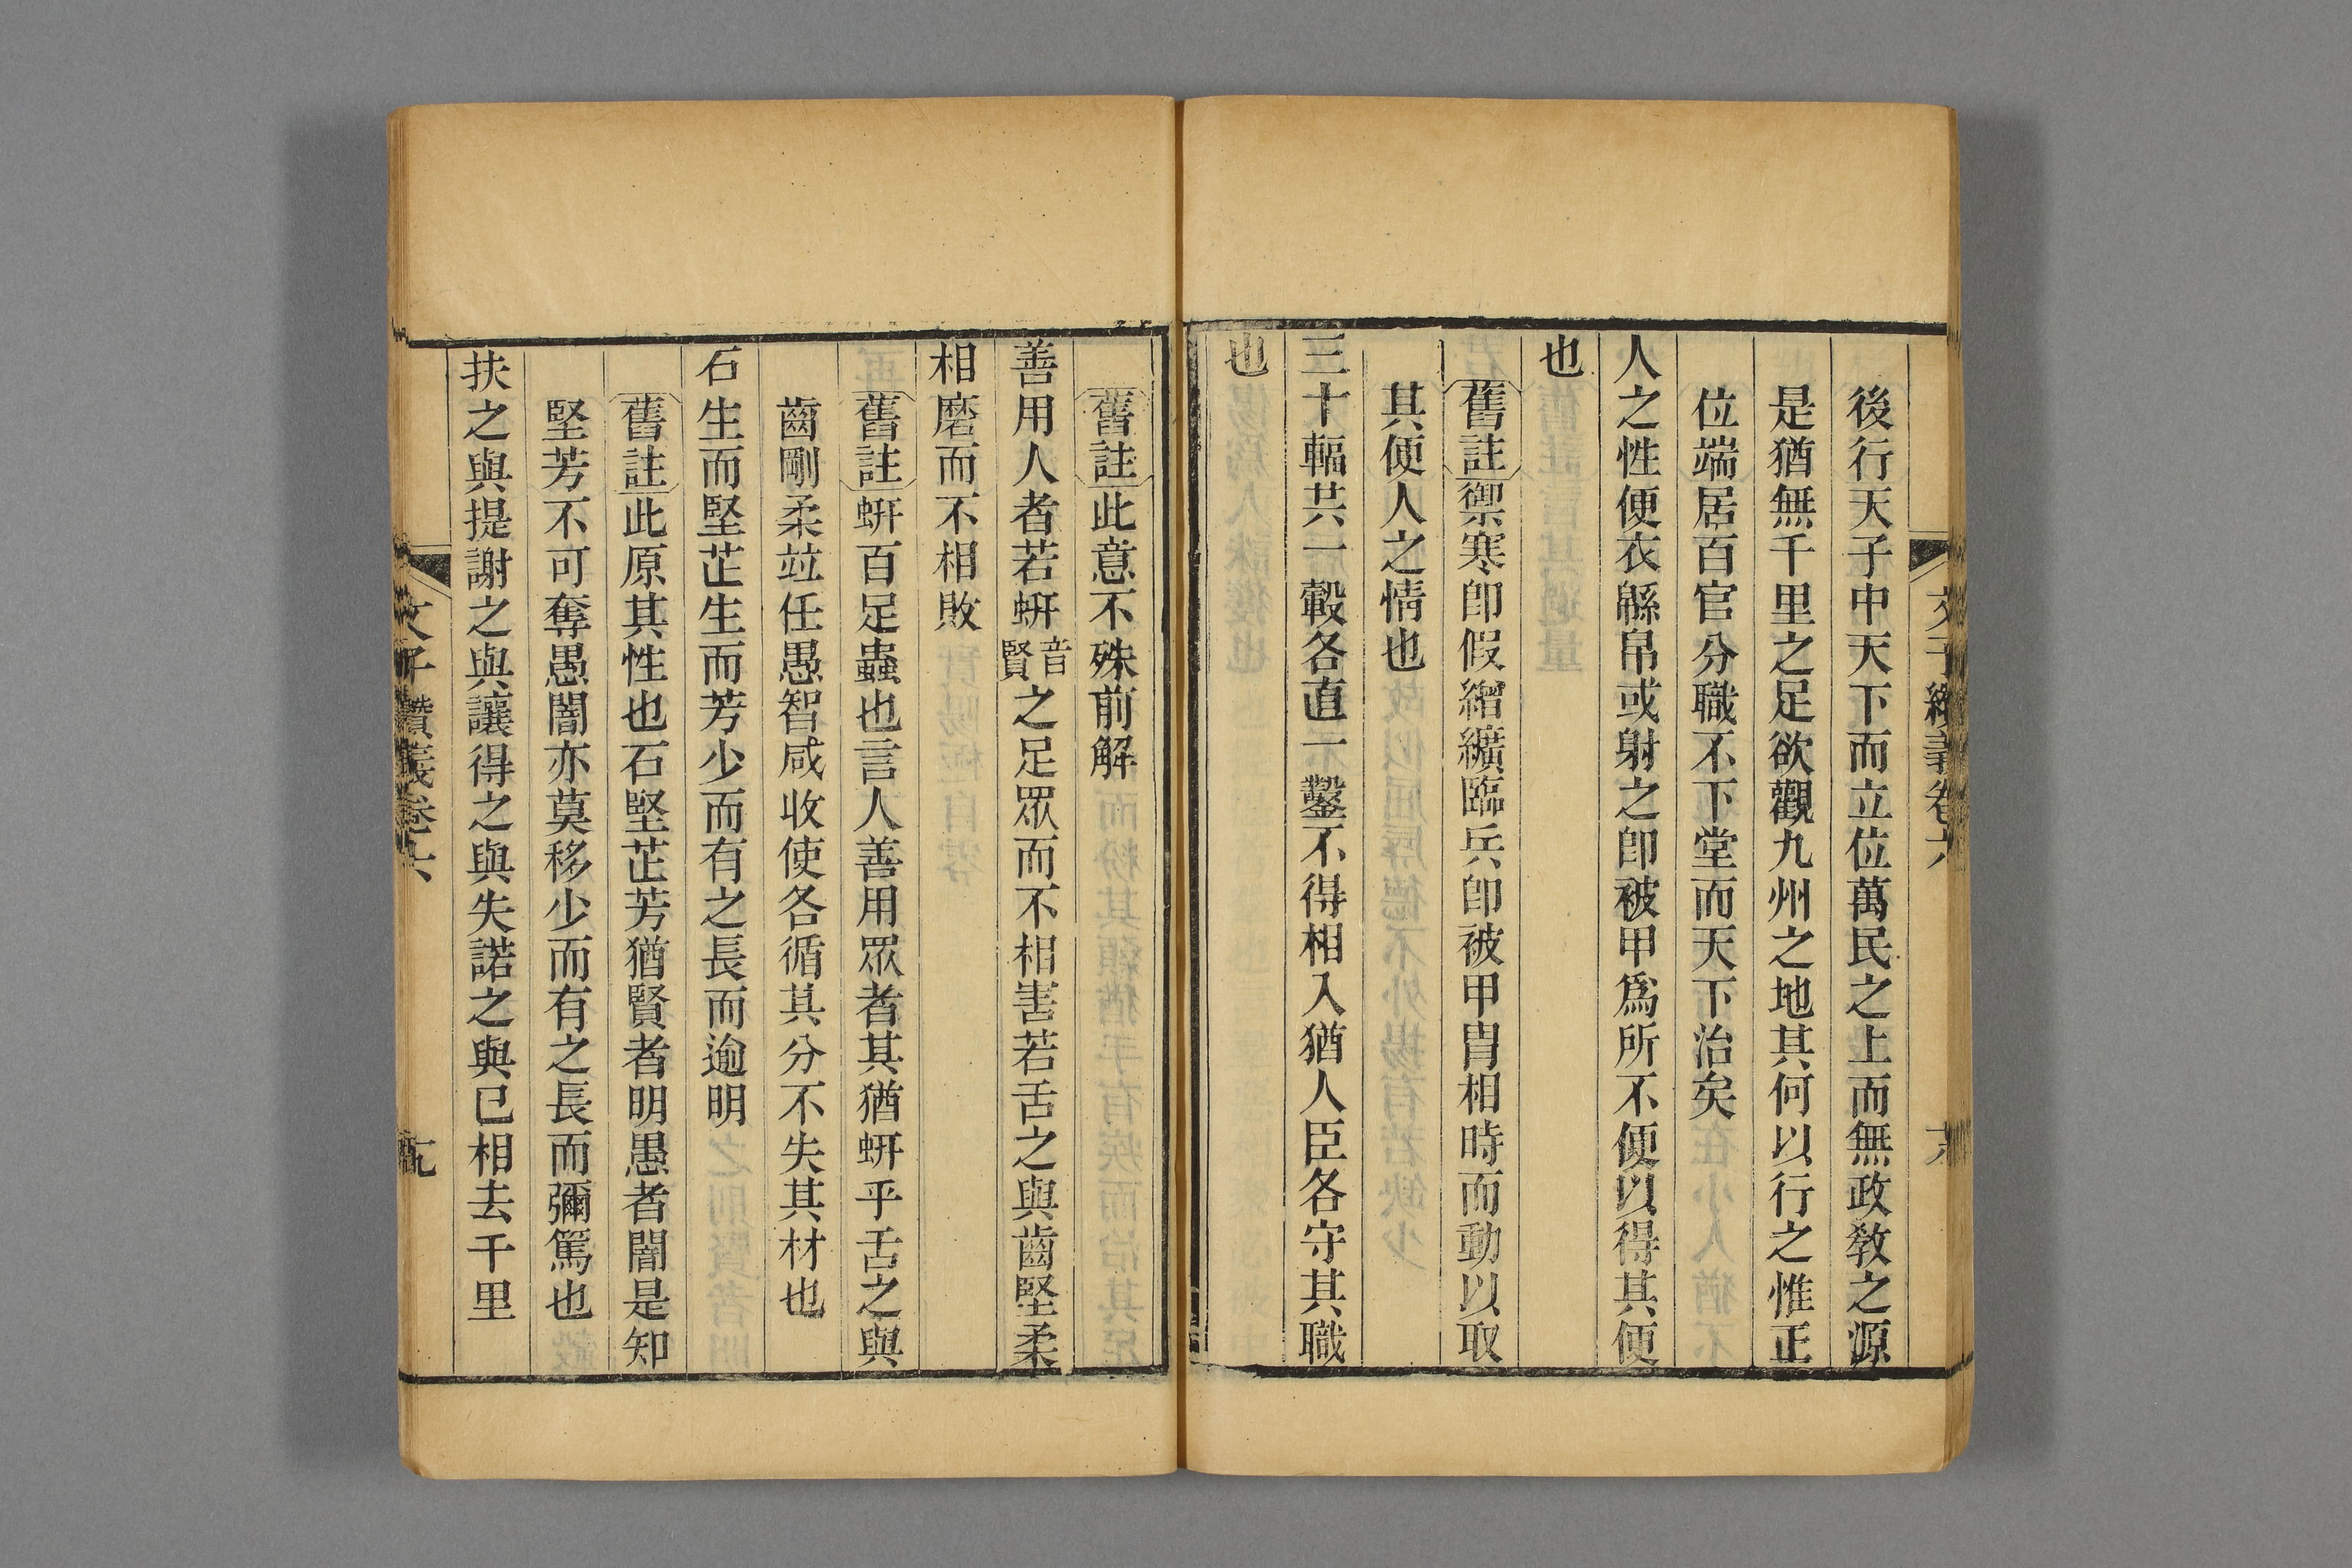 後行天子中天下而立位萬民之上而無政教之源
是猶無千里之足欲觀九州之地其何以行之惟正
位端居百官分職不下堂而天下治矣
人之性便衣緜帛或射之卽被甲爲所不便以得其便
也
舊註禦寒卽假繒纊臨兵卽被甲胄相時而動以取
其便人之情也
三十輻共一轂各直一鑿不得相入猶人臣各守其職
也
舊註此意不殊前解
善用人者若蚈音賢之足眾而不相害若舌之與齒堅柔
相磨而不相敗
舊註蚈百足蟲也言人善用眾者其猶蚈乎舌之與
齒剛柔竝任愚智咸收使各循其分不失其材也
石生而堅芷生而芳少而有之長而逾明
舊註此原其性也石堅芷芳猶賢者明愚者闇是知
堅芳不可奪愚闇亦莫移少而有之長而彌篤也
扶之與提謝之與讓得之與失諾之與已相去千里
文子纘義卷六